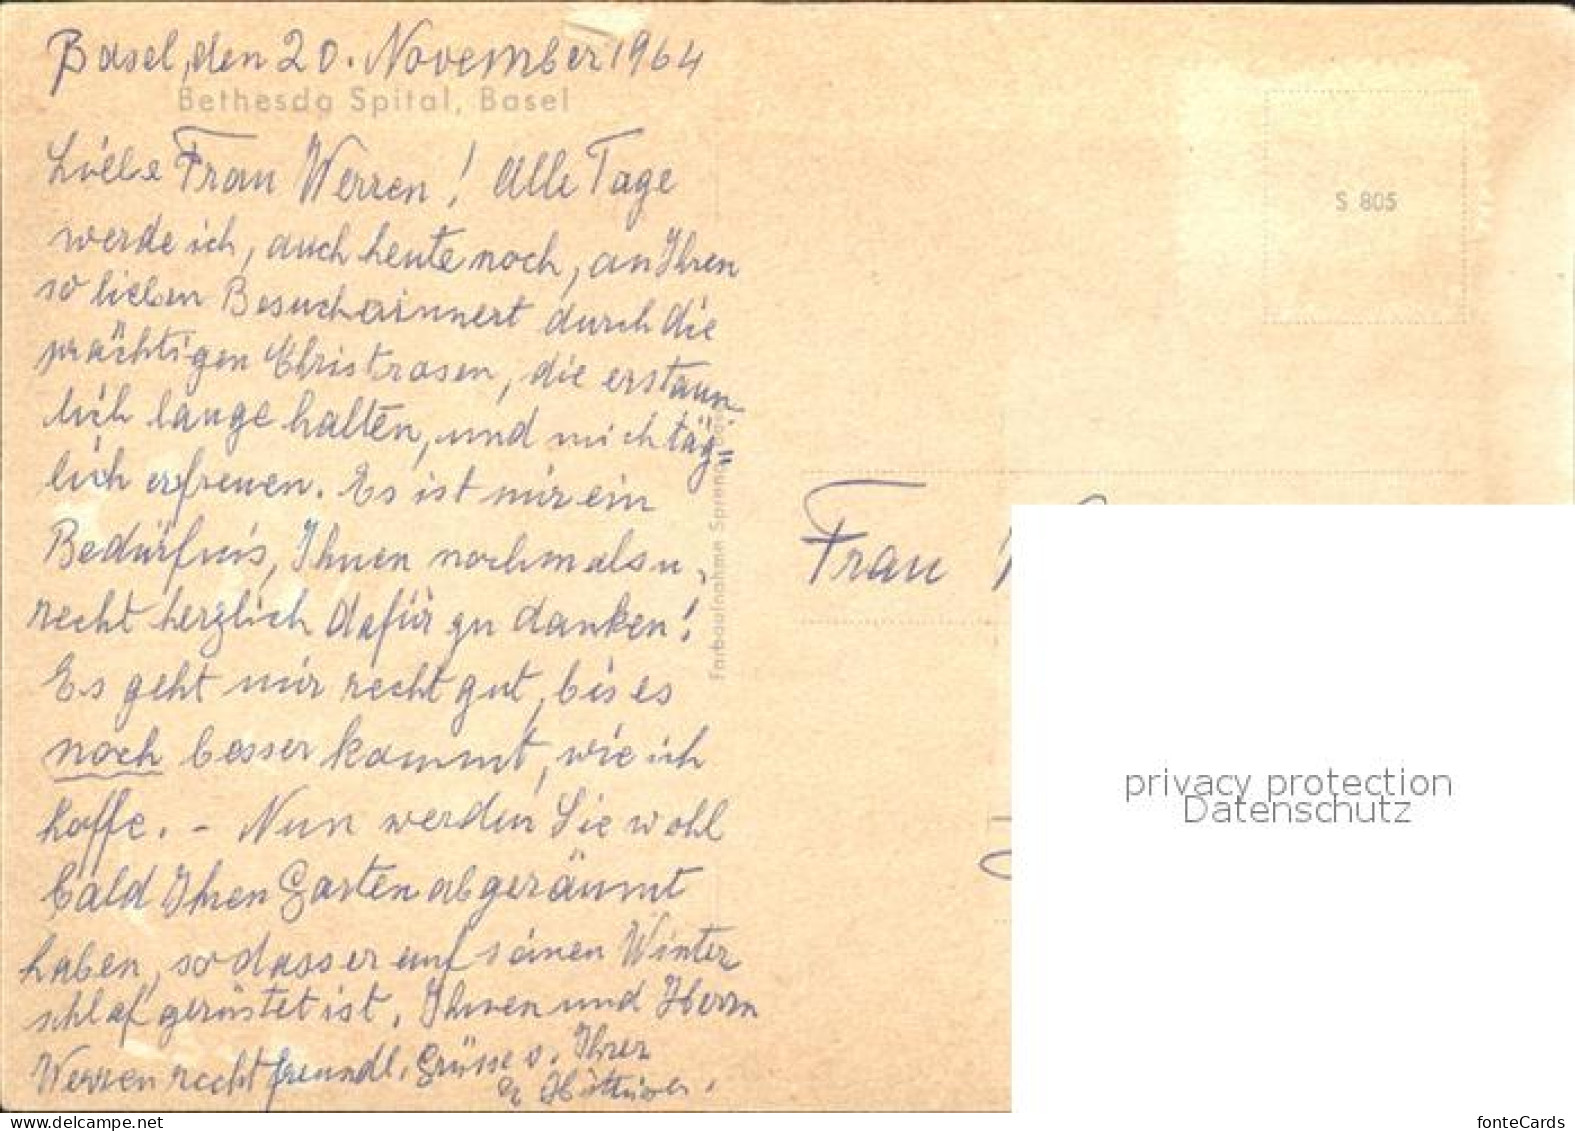 Basel, den 20. November 1964
Bethesda Spital, Basel
Liebe Frau Werren! Alle Tage
werde ich, auch heute noch, an Ihren
so lieben Besuch erinnert durch die
prächtigen Christrosen, die erstaun
lich lange halten, und mich täg=
lich erfreuen. Es ist mir ein
Bedürfnis, Ihnen nochmals u.
recht herzlich dafür zu danken!
Es geht mir recht gut, bis es
noch besser kommt, wie ich
hoffe. - Nun werden Sie wohl
bald Ihren Garten abgeräumt
haben, so dass er auf seinen Winter
schlaf gerüstet ist. Ihnen und Herrn
Werren recht freundl. Grüsse v. Ihrer
Farbaufnahme
S 805
Frau
privacy protection
Datenschutz
www.delcampe.net
fonteCards